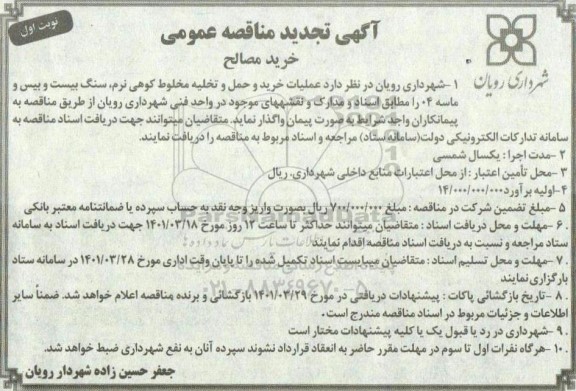 نوبت اول
آگهی تجدید مناقصه عمومی
خرید مصالح
شهرداری رویان
۱-شهرداری رویان در نظر دارد عملیات خرید و حمل و تخلیه مخلوط کوهی نرم، سنگ بیست و بیس و
ماسه ۰۴ را مطابق اسناد و مدارک و نقشه‎های موجود در واحد فنی شهرداری رویان از طریق مناقصه به
پیمانکاران واجد شرایط به صورت پیمان واگذار نماید. متقاضیان میتوانند جهت دریافت اسناد مناقصه به
سامانه تدارکات الکترونیکی دولت(سامانه ستاد) مراجعه و اسناد مربوط به مناقصه را دریافت نمایند.
۲-مدت اجرا : یکسال شمسی
۳-محل تأمین اعتبار :از محل اعتبارات منابع داخلی شهرداری، ریال
۴-اولیه برآورد۱۴/۰۰۰/۰۰۰/۰۰۰
۵-مبلغ تضمین شرکت در مناقصه : مبلغ ۷۰۰/۰۰۰/۰۰۰ ریال بصورت واریز وجه نقد به حساب سپرده یا ضمانتنامه معتبر بانکی
۶-مهلت و محل دریافت اسناد : متقاضیان میتوانند حداکثر تا ساعت ۱۳ روز مورخ ۱۴۰۱/۰۳/۱۸ جهت دریافت اسناد به سامانه
ستاد مراجعه و نسبت به دریافت اسناد مناقصه اقدام نمایند
۷-مهلت و محل تسلیم اسناد : متقاضیان میبایست اسناد تکمیل شده را تا پایان وقت اداری مورخ ۱۴۰۱/۰۳/۲۸ در سامانه ستاد
بارگزاری نمایند
۸-تاریخ بازگشائی پاکات : پیشنهادات دریافتی در مورخ ۱۴۰۱/۰۳/۲۹ بازگشائی و برنده مناقصه اعلام خواهد شد. ضمناً سایر
اطلاعات و جزئیات مربوط در اسناد مناقصه مندرج است.
۹-شهرداری در رد یا قبول یک یا کلیه پیشنهادات مختار است
۱۰-هرگاه نفرات اول تا سوم در مهلت مقرر حاضر به انعقاد قرارداد نشوند سپرده آنان به نفع شهرداری ضبط خواهد شد.
جعفر حسین زاده شهردار رویان
ParsNamadData
۰۲۱-۸۸۳۴۹۶۷۰-۵